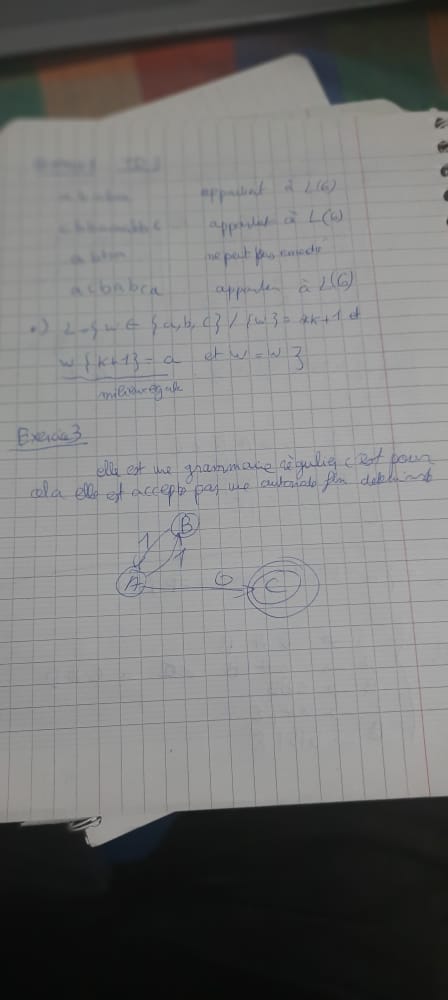 appartient à L(G)
appartient à L(G)
ne peut pas
acbabca appartien à L(G)
L = { w ∈ {a, b, c} / |w| = 2k+1 et
w {k+1} = a et w = w }
Exercice 3
elle est une grammaire régulier c'est pour
cela elle est accepte par une automate fini
B
1
1
A
0
C